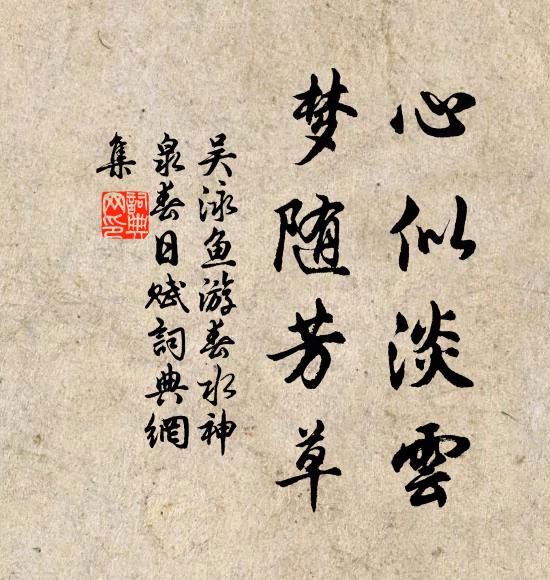 心似淡雲
梦随芳草
吴泳鱼游春水神
泉春日赋詞典網
集
詞典网印